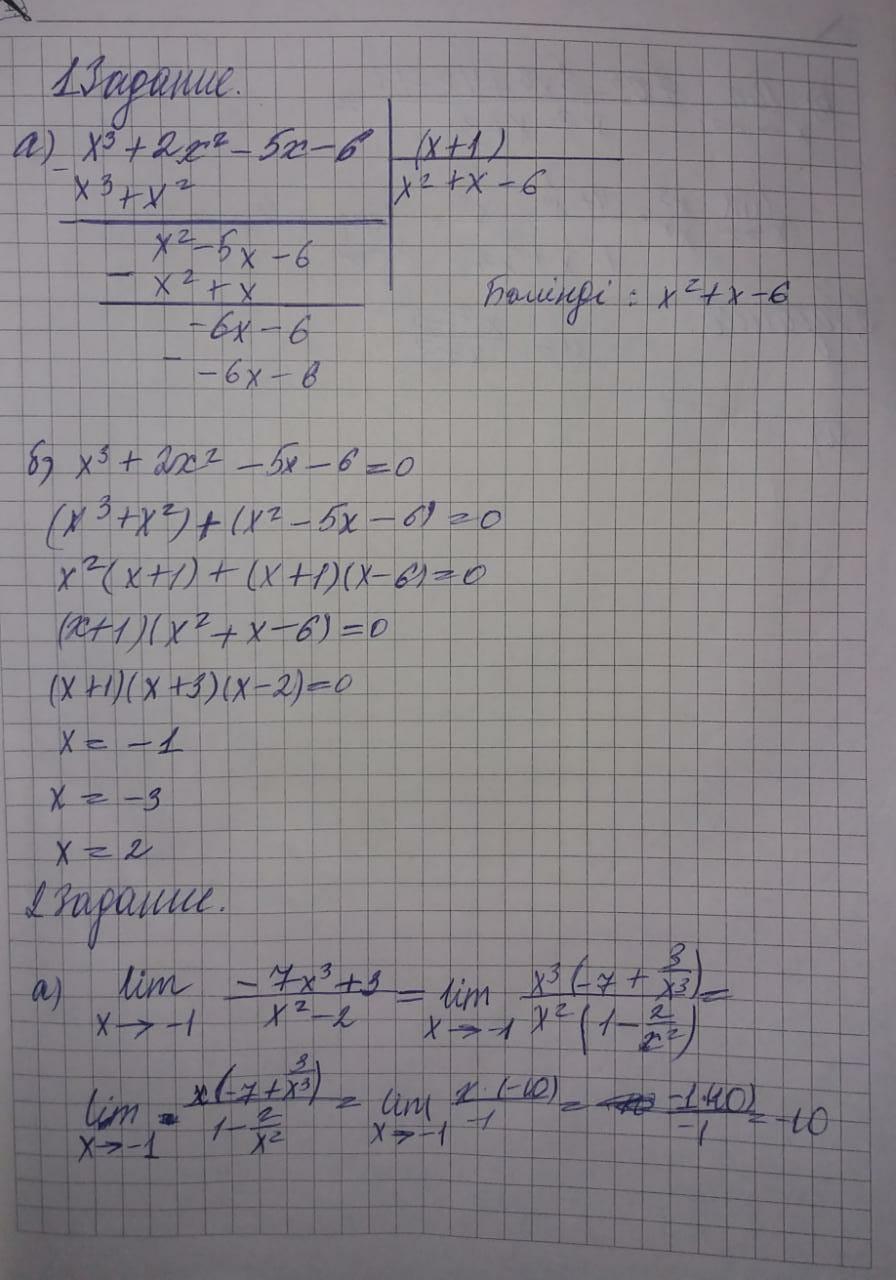 1 Задание.
а) x³ + 2x² - 5x - 6 | (x+1)
- x³ + x² | x² + x - 6
x² - 5x - 6
- x² + x
Бөлінді : x² + x - 6
-6x - 6
- -6x - 6
б) x³ + 2x² - 5x - 6 = 0
(x³ + x²) + (x² - 5x - 6) = 0
x²(x+1) + (x+1)(x-6) = 0
(x+1)(x² + x - 6) = 0
(x+1)(x+3)(x-2) = 0
x = -1
x = -3
x = 2
2 Задание.
а) lim x→-1 (-7x³+3)/(x²-2) = lim x→-1 x³(-7 + 3/x³)/x²(1 - 2/x²) =
lim x→-1 x(-7 + 3/x³)/(1 - 2/x²) = lim x→-1 x·(-10)/-1 = -1·(-10)/-1 = -10